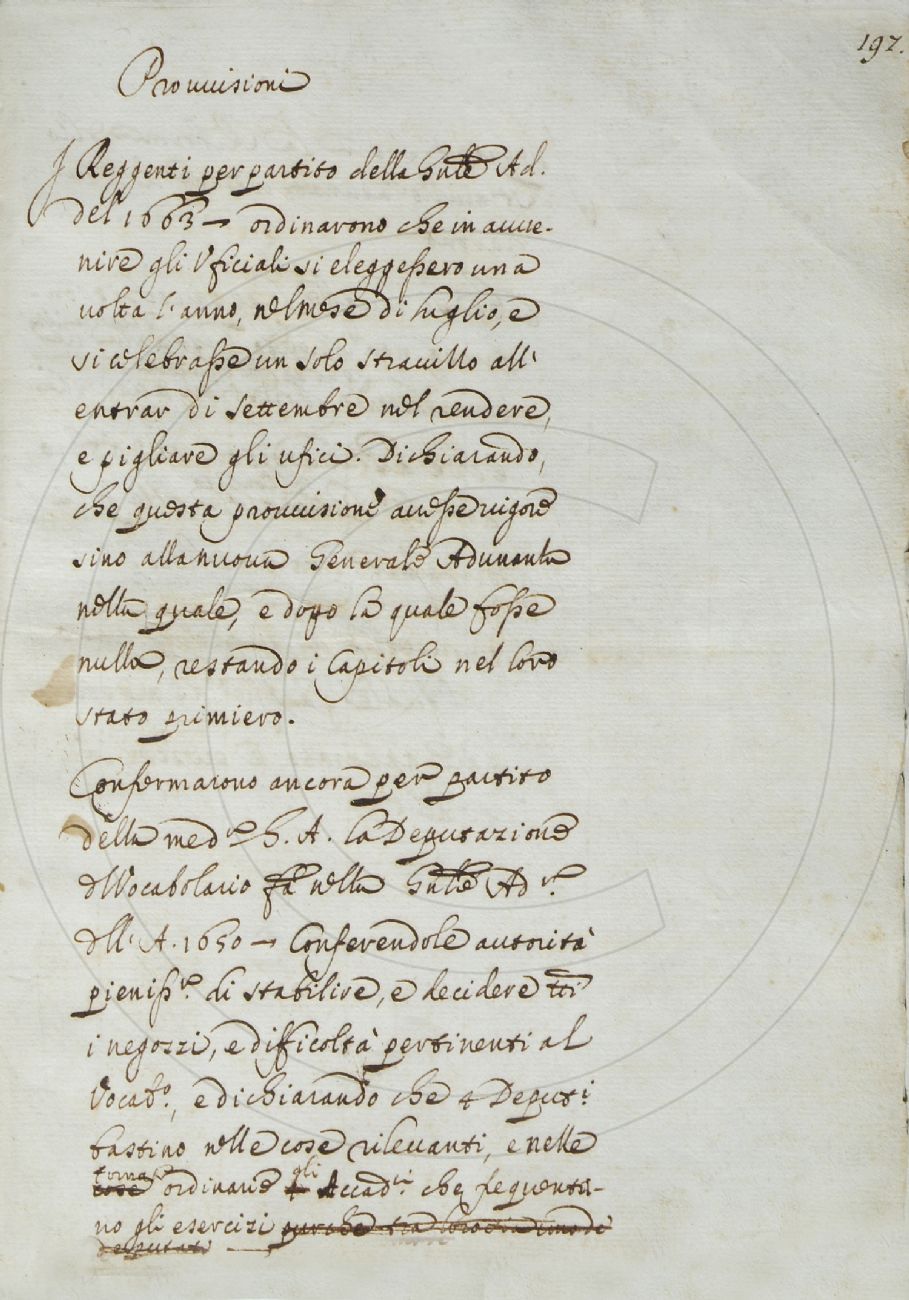 197.
Prouuisioni
I Reggenti per partito della Gnle Ad.
del 1663 → ordinarono che in auue-
nire gli Vficiali si eleggessero una
uolta l'anno, nel mese di luglio, e
si celebrasse un solo strauizzo all'
entrar di settembre nel rendere,
e pigliare gli ufici. Dichiarando,
che questa prouuisione auesse uigore
sino alla nuoua Generale Adunanza
nella quale, e dopo la quale fosse
nulla, restando i Capitoli nel loro
stato primiero.
Confermarono ancora per partito
della med.ma G. A. la Deputazione
d'Vocabolario fa nella Gnle Ad.za
dell' A. 1650 → Conferendole autorità
pieniss.ma di stabilire, e decidere tti
i negozzi, e difficoltà pertinenti al
Vocab.o, e dichiarando che 4 Deput.i
bastino nelle cose rileuanti, e nelle
cose ordinarie gli Accad.i che frequenta-
no gli esercizi purche tra loro sia uno de
deputati